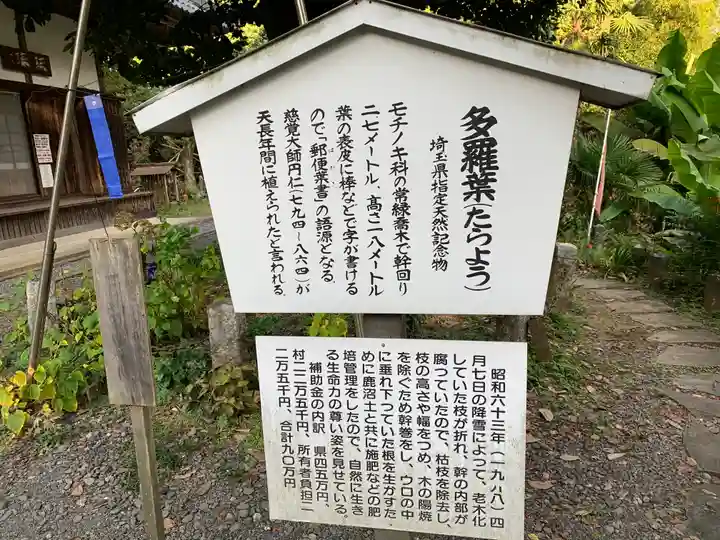 多羅葉(たらよう)
埼玉県指定天然記念物
モチノキ科の常緑喬木で幹回り
二七メートル、高さ一八メートル
葉の表皮に棒などで字が書ける
ので「郵便葉書」の語源となる。
慈覚大師円仁(七九四―八六四)が
天長年間に植えられたと言われる。
昭和六十三年(一九八八)四
月七日の降雪によって、老木化
していた枝が折れ、幹の内部が
腐っていたので、枯枝を除去し、
枝の高さや幅をつめ、木の陽焼
を除ぐため幹巻をし、ウロの中
に垂れ下っていた根を生かすた
めに鹿沼土と共に施肥などの肥
培管理をしたので、自然に生き
る生命力の尊い姿を見せている。
補助金の内訳 県四五万円、
村二二万五千円、所有者負担二
二万五千円、合計九〇万円